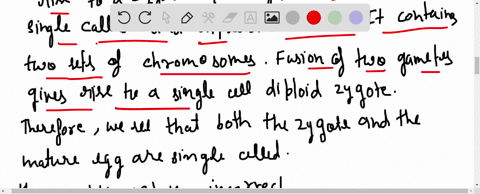 to a
single ... It contains
two sets of chromosomes. Fusion of two gametes
gives rise to a single cell diploid zygote.
Therefore, we see that both the zygote and the
mature egg are single called.
incorrect